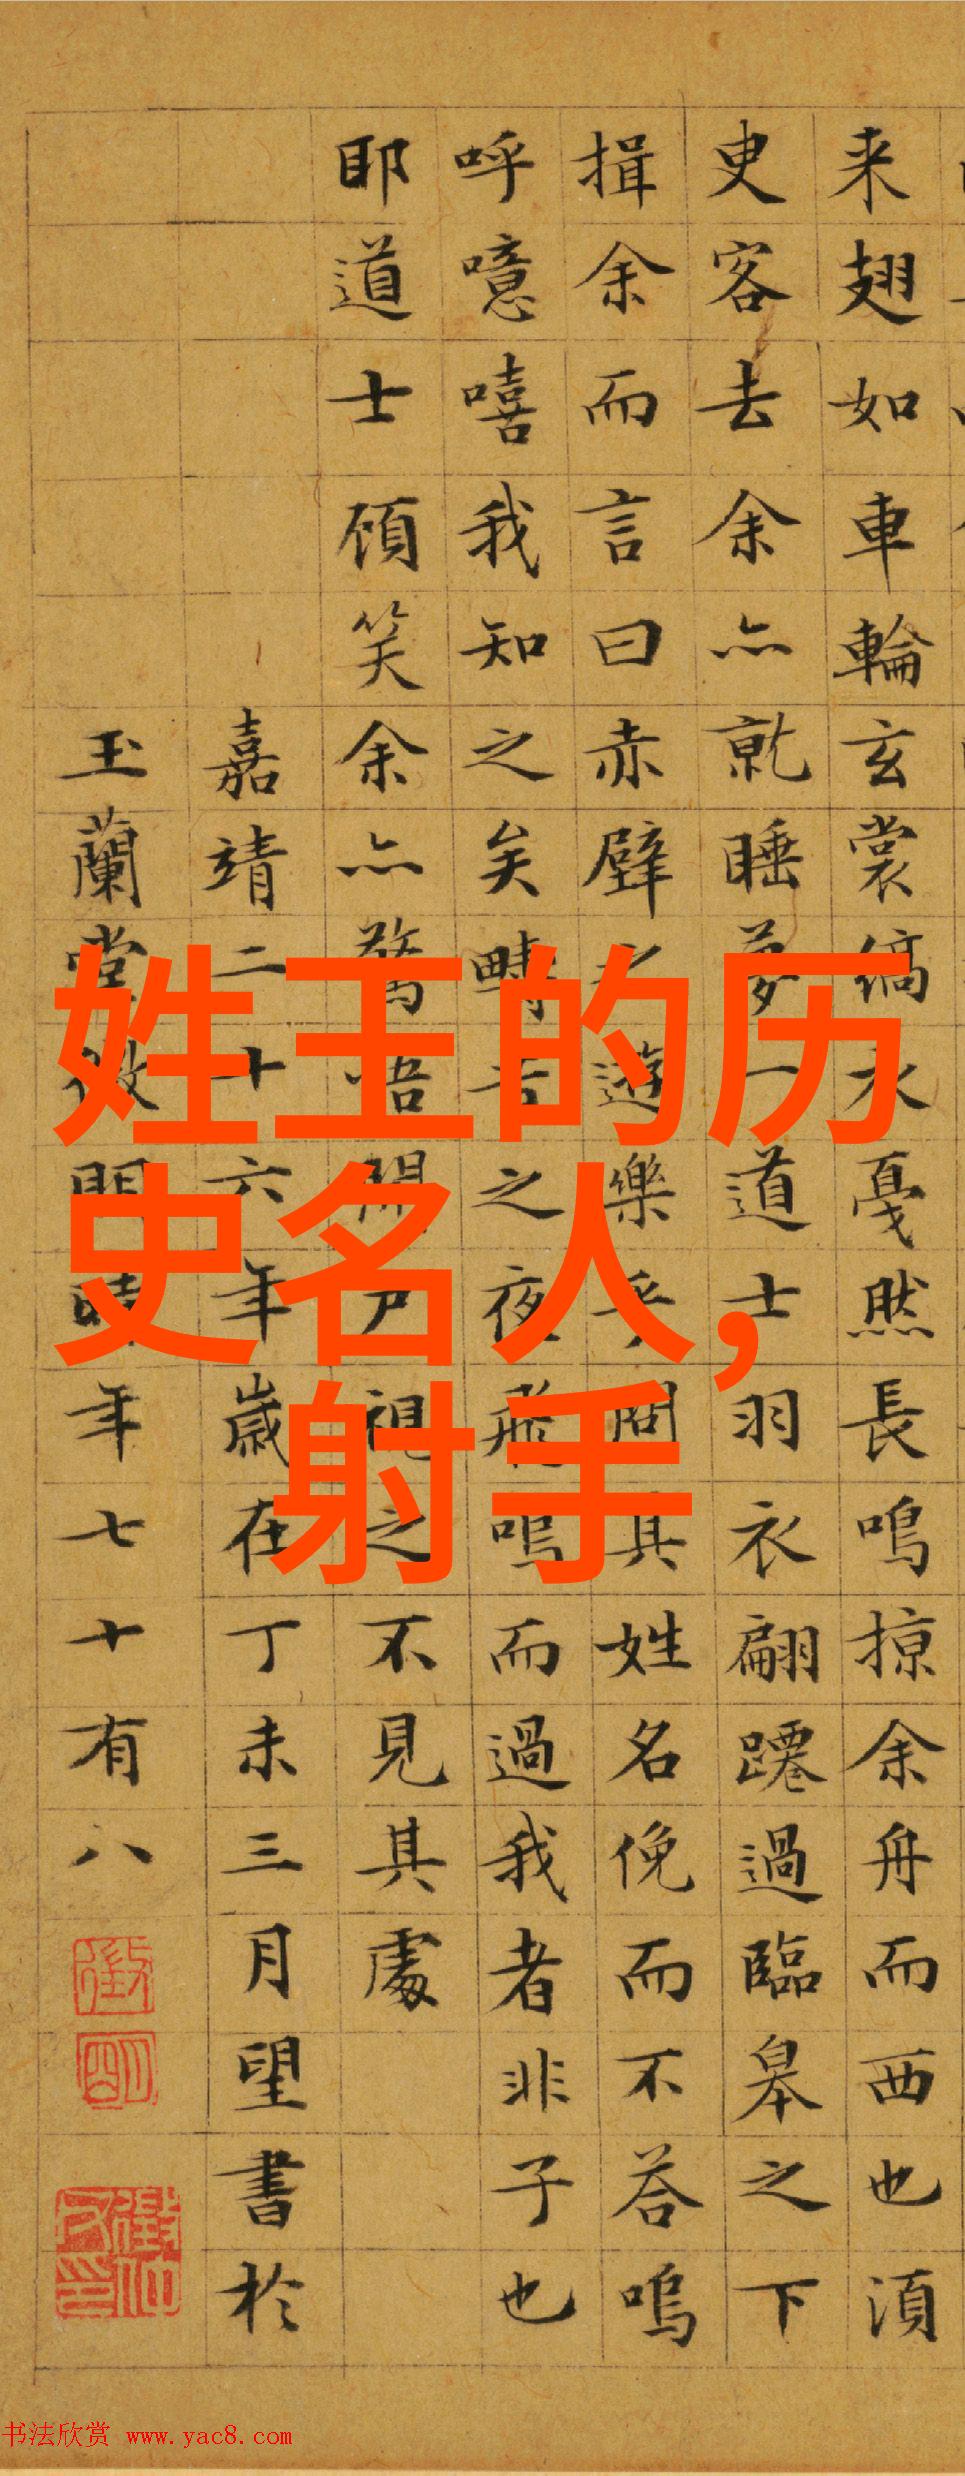 来翅如車輪玄裳縞衣戛然長鳴掠余舟而西也須
臾客去余亦就睡夢一道士羽衣翩躚過臨皋之下
揖余而言曰赤壁之遊樂乎問其姓名俛而不答嗚
呼噫嘻我知之矣疇昔之夜飛鳴而過我者非子也
耶道士顧笑余亦驚悟開戶視之不見其處
嘉靖二十六年歲在丁未三月望書於
玉蘭堂徵明時年七十有八
徵
明
姓王的历
史名人,
射手
书法欣赏 www.yac8.com